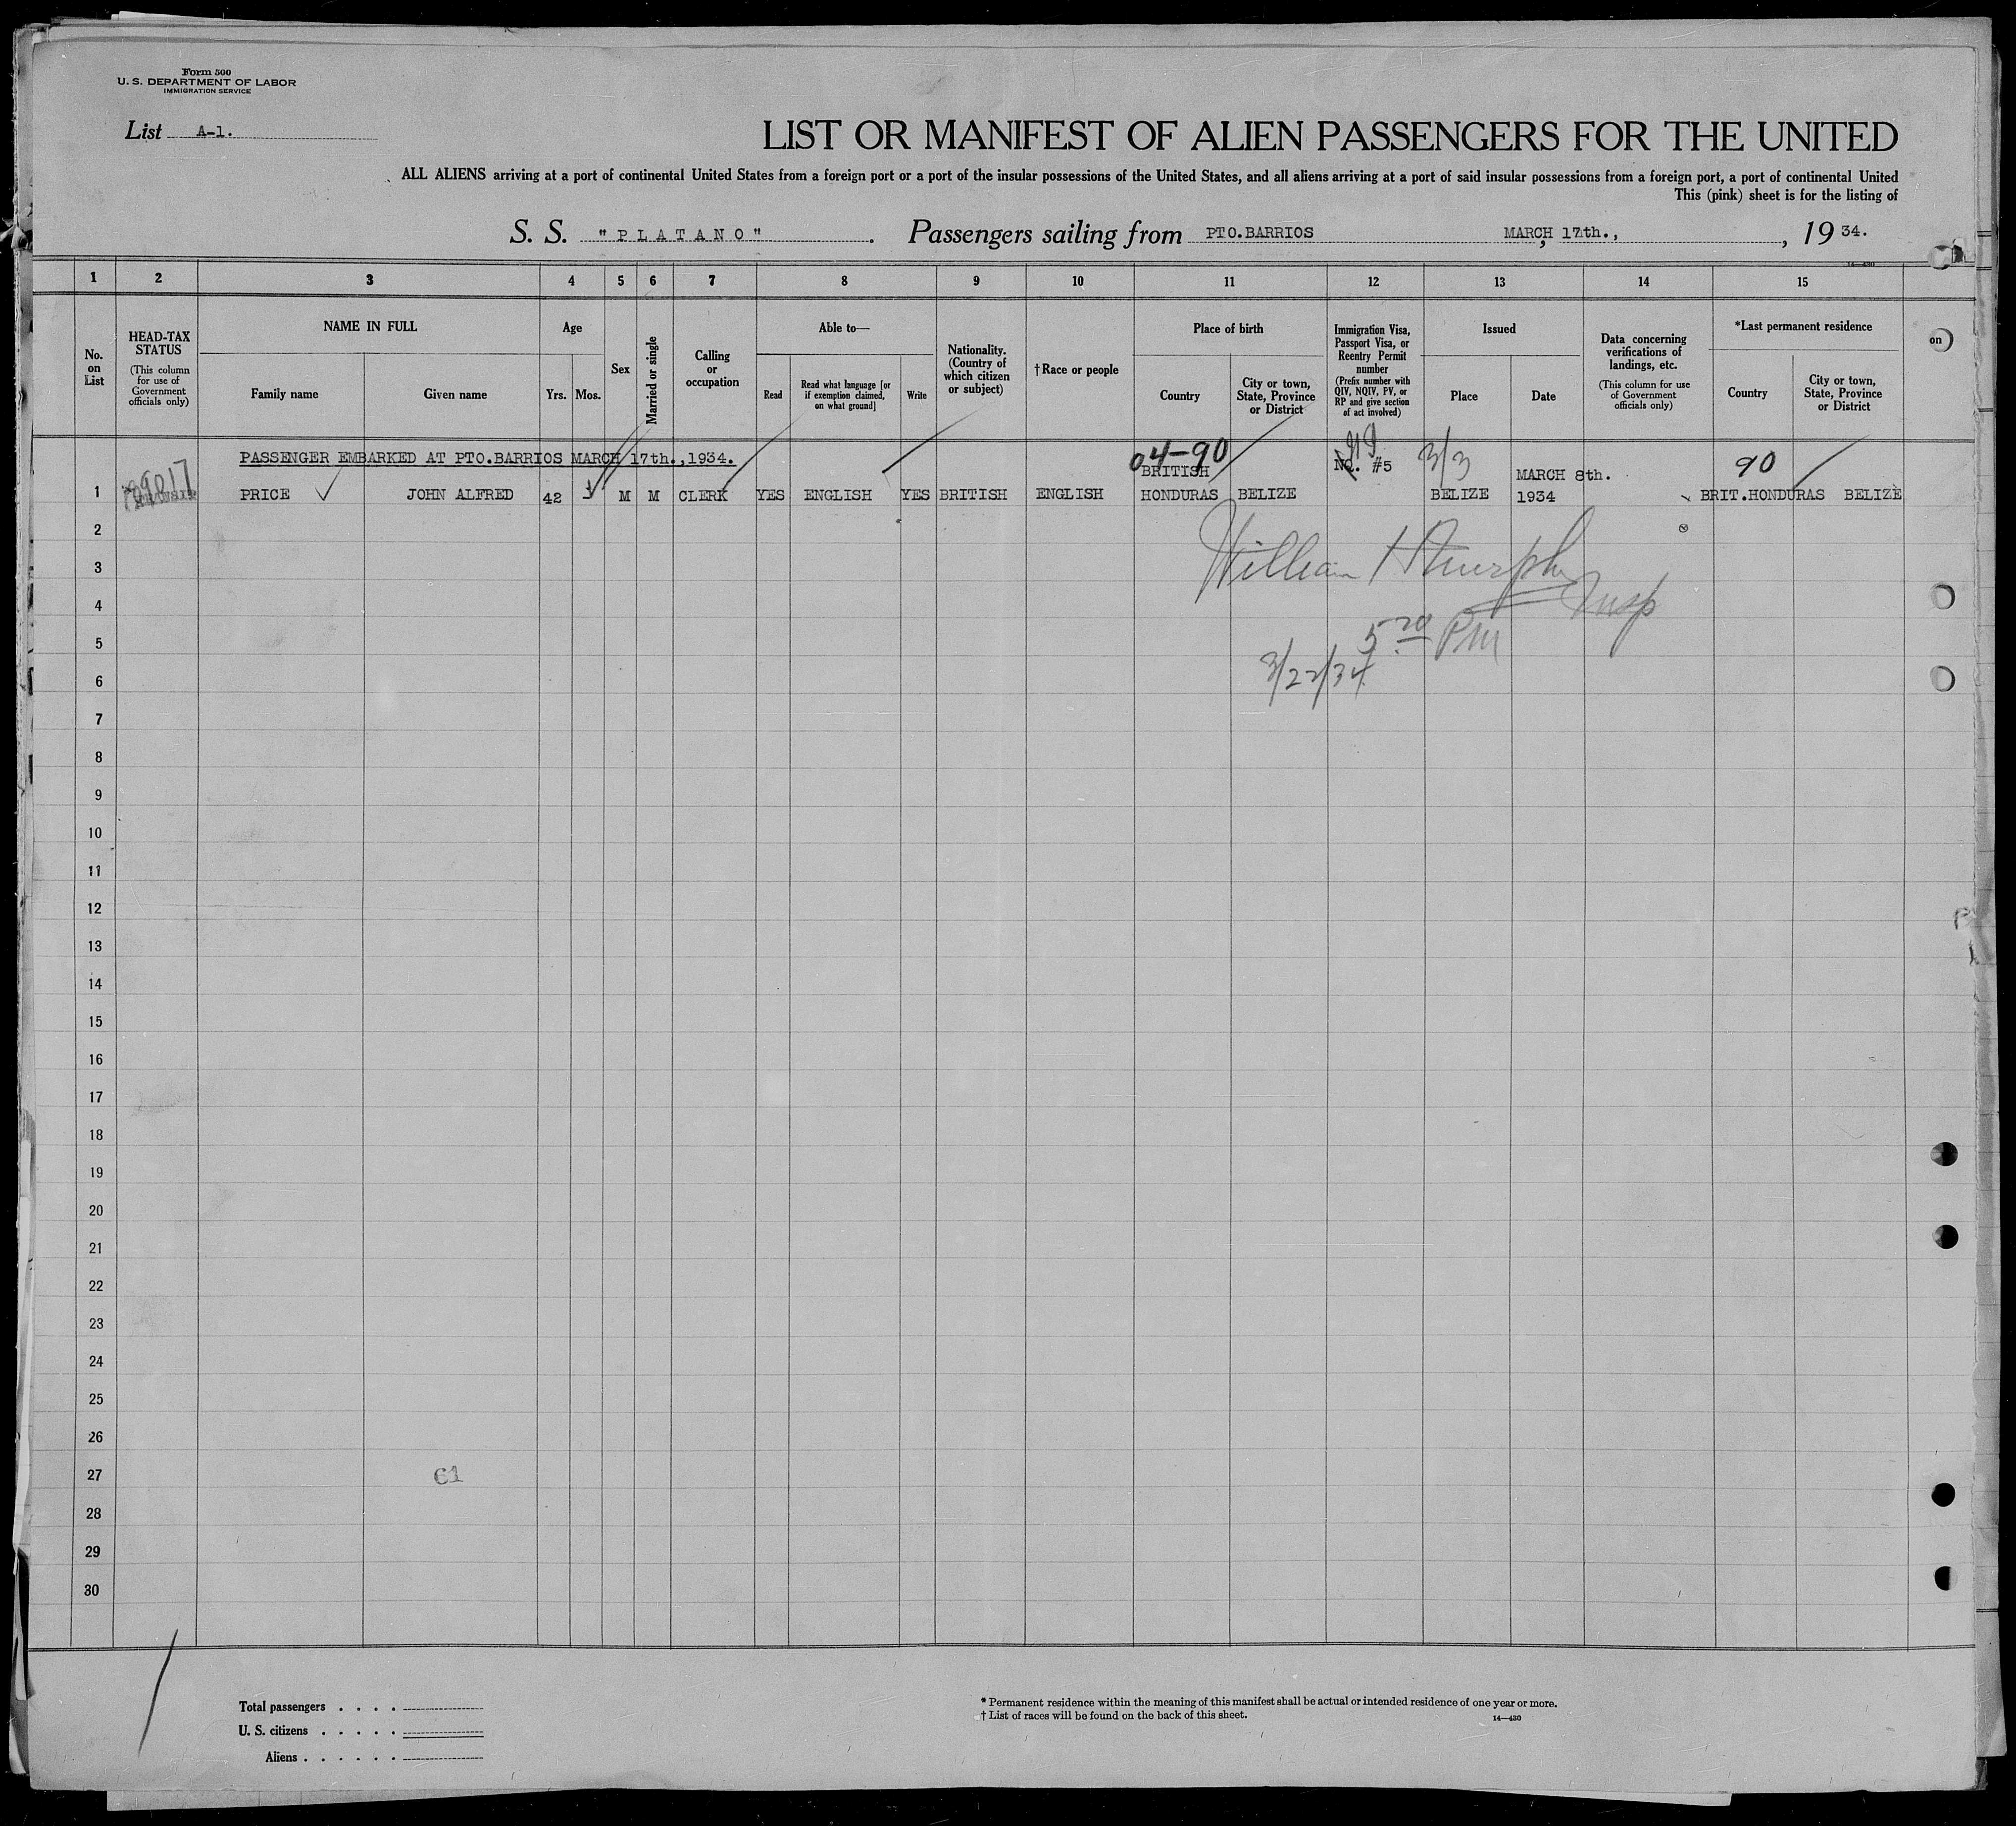 Form 500
U. S. DEPARTMENT OF LABOR
IMMIGRATION SERVICE
List A-1.
LIST OR MANIFEST OF ALIEN PASSENGERS FOR THE UNITED
ALL ALIENS arriving at a port of continental United States from a foreign port or a port of the insular possessions of the United States, and all aliens arriving at a port of said insular possessions from a foreign port, a port of continental United
This (pink) sheet is for the listing of
S. S. "PLATANO". Passengers sailing from PTO.BARRIOS, MARCH 17th., , 1934.
14—430
1 2 3 4 5 6 7 8 9 10 11 12 13 14 15
No. on List
HEAD-TAX STATUS
(This column for use of Government officials only)
NAME IN FULL
Family name
Given name
Age
Yrs. Mos.
Sex
Married or single
Calling or occupation
Able to—
Read
Read what language [or if exemption claimed, on what ground]
Write
Nationality. (Country of which citizen or subject)
†Race or people
Place of birth
Country
City or town, State, Province or District
Immigration Visa, Passport Visa, or Reentry Permit number
(Prefix number with QIV, NQIV, PV, or RP and give section of act involved)
Issued
Place
Date
Data concerning verifications of landings, etc.
(This column for use of Government officials only)
*Last permanent residence
Country
City or town, State, Province or District
on
PASSENGER EMBARKED AT PTO.BARRIOS MARCH 17th.,1934.
04-90
3/3
90
BRITISH NO. #5 MARCH 8th.
1 PRICE JOHN ALFRED 42 M M CLERK YES ENGLISH YES BRITISH ENGLISH HONDURAS BELIZE BELIZE 1934 BRIT.HONDURAS BELIZE
2
William H Murphy
3
Insp
4
5 20 PM
5
3/22/34
6
7
8
9
10
11
12
13
14
15
16
17
18
19
20
21
22
23
24
25
26
27
61
28
29
30
Total passengers . . . .
U. S. citizens . . . . .
Aliens . . . . . .
* Permanent residence within the meaning of this manifest shall be actual or intended residence of one year or more.
† List of races will be found on the back of this sheet.
14—430